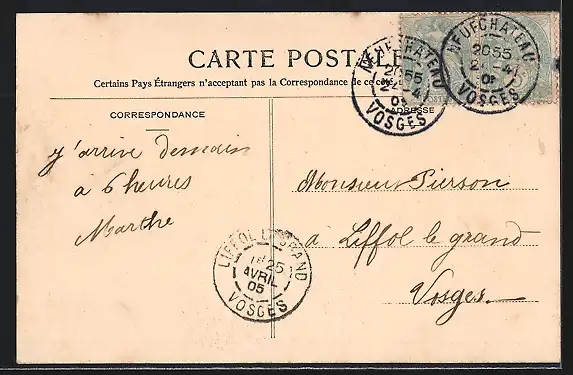 CARTE POSTALE
Certains Pays Étrangers n'acceptent pas la Correspondance de ce côté
CORRESPONDANCE
ADRESSE
NEUFCHATEAU
20 55
VOSGES
NEUFCHATEAU
20 55
VOSGES
y'arrive demain
à 6 heures
Marthe
Monsieur Pierson
à Liffol le grand
Vosges.
LIFFOL LE GRAND
25
AVRIL
05
VOSGES